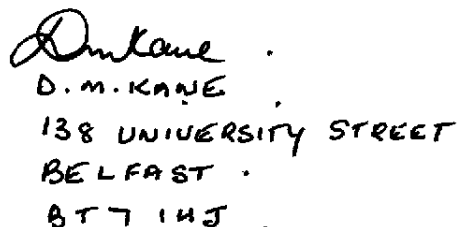 DMKane.
D.M. KANE
138 UNIVERSITY STREET
BELFAST.
BT7 1HJ.